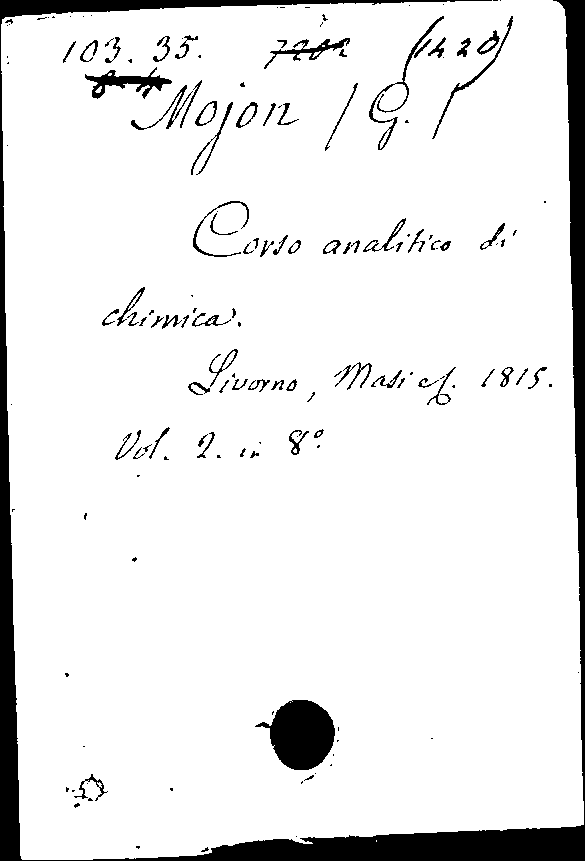 103. 35. 7202 (14 20)
8-4
Mojon / G. /
Corso analitico di
chimica.
Livorno, Masi e f. 1815.
Vol. 2. in 8°.